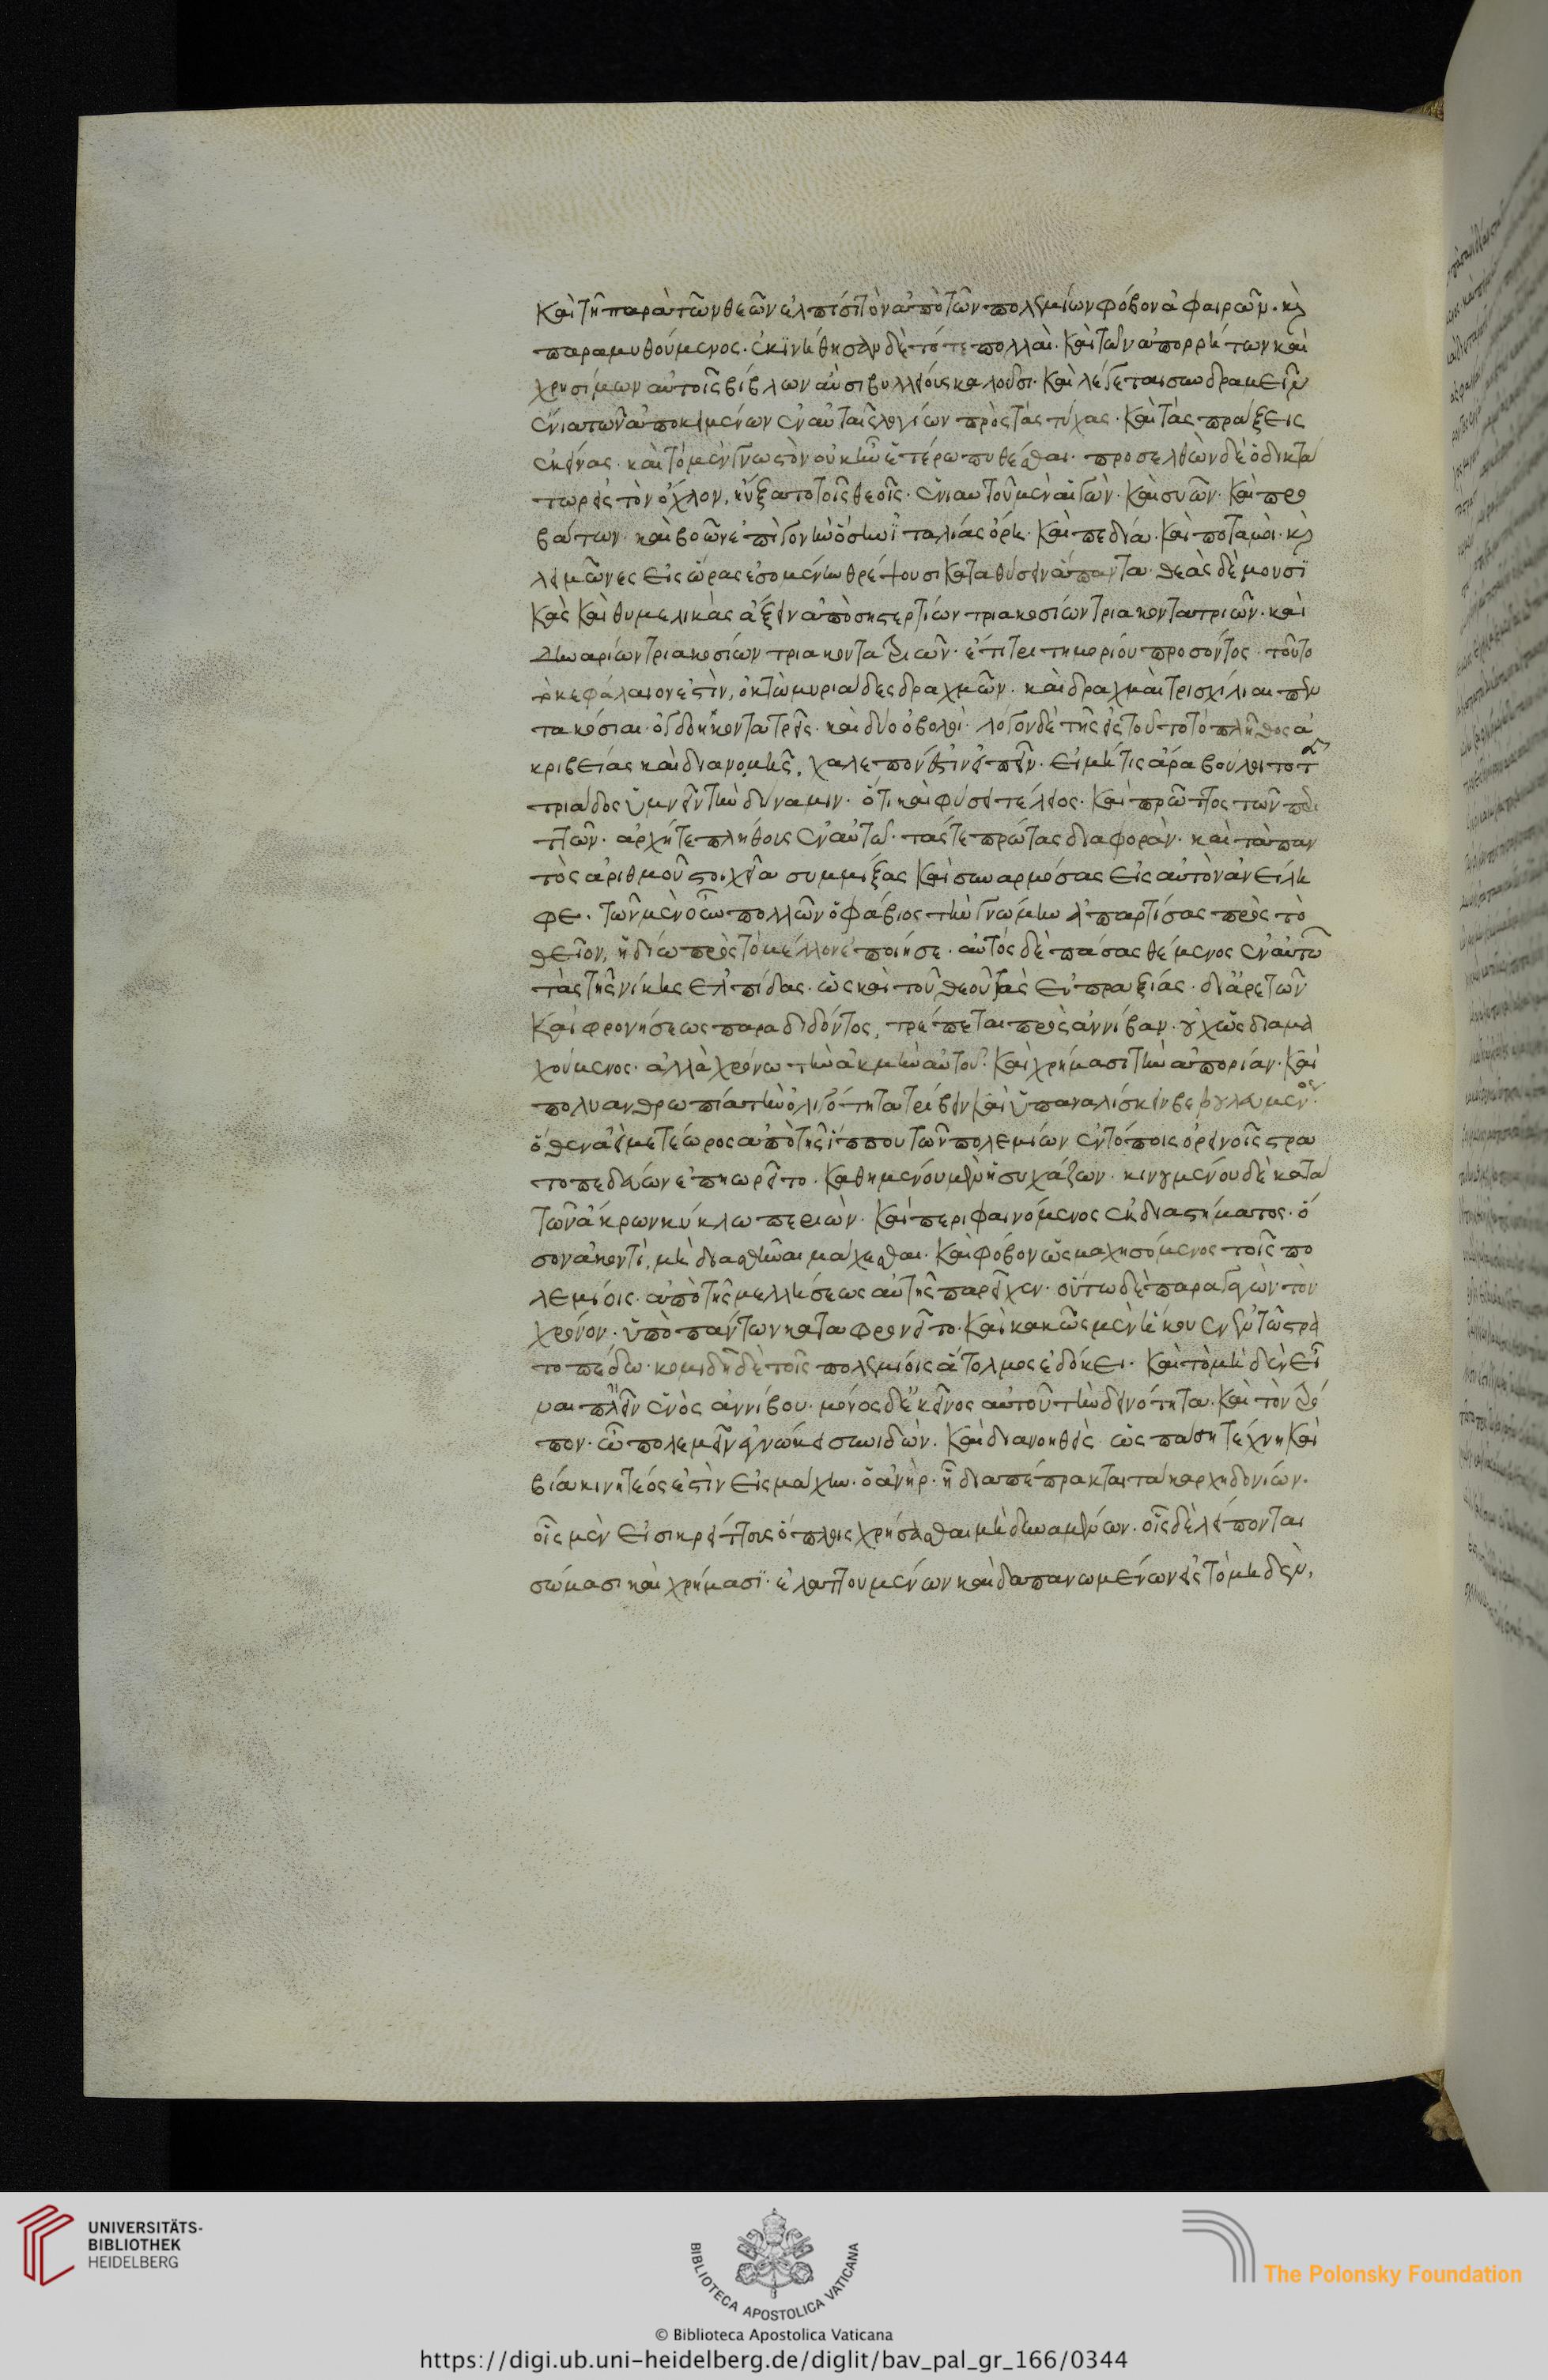 Καὶ τῆ παρὰ τῶν θεῶν ἐλπίσι τὸν ἀπὸ τῶν πολεμίων φόβον ἀφαιρῶν. κὶ
παραμυθούμενος. ἐκϊνήθησαν δὲ τότε πολλαὶ. Καὶ τῶν ἀπορρήτων καὶ
χρησίμων αὐτοῖς βίβλων ἃς σιβυλλείους καλοῦσι. Καὶ λέγεται συνδραμεῖν
ἔνια τῶν ἀποκειμένων ἐν αὐταῖς λογίων πρὸς τὰς τύχας. Καὶ τὰς πράξεις
ἐκείνας. καὶ τὸ μὲν γνωστὸν οὐκ ἦν ἑτέρω πυθέσθαι. προσελθὼν δὲ ὁ δικτά
τωρ εἰς τὸν ὄχλον, ηὔξατο τοῖς θεοῖς. ἐνιαυτοῦ μὲν αἰγῶν. Καὶ συῶν. Καὶ προ
βάτων. καὶ βοῶν ἐπὶ γονὴν ὅσην ϊταλίας ὄρη. Καὶ πεδία. Καὶ ποταμοὶ. κὶ
λειμῶνες εἰς ὥρας ἐσομένην θρέψουσι καταθύσειν ἅπαντα. θεὰς δὲ μουσϊ
κὰς Καὶ θυμελικὰς ἄξειν ἀπὸ σηστερτίων τριακοσίων τριακοντατριῶν. καὶ
δηναρίων τριακοσίων τριακοντατριῶν. ἔτι τριτημορίου προσόντος. τοῦτο
τὸ κεφάλαιον ἐστὶν, ὀκτὼ μυριάδες δραχμῶν. καὶ δραχμαὶ τρισχίλιαι πεν
τακόσιαι. ὀγδοήκοντα τρεῖς. καὶ δύο ὀβολοὶ. λόγον δὲ τῆς εἰς τοῦτο τὸ πλῆθος ἀ
κριβείας καὶ διανομῆς, χαλεπόν ἐστιν εἰπεῖν. εἰ μή τις ἄρα βούλοιτο τῆς
τριάδος ὑμνεῖν τὴν δύναμιν. ὅτι καὶ φύσει τέλειος. Καὶ πρῶτος τῶν περι
ττῶν. ἀρχή τε πλήθους ἐν αὐτῶ. τάς τε πρώτας διαφορὰν. καὶ τὰ παν
τὸς ἀριθμοῦ στοιχεῖα συμμίξας Καὶ συναρμόσας εἰς αὐτὸν ἀνείλη
φε. τῶν μὲν οὖν πολλῶν ὁ φάβιος τὴν γνώμην ἀπαρτίσας πρὸς τὸ
θεῖον, ἡδίω πρὸς τὸ μέλλον ἐποίησε. αὐτὸς δὲ πάσας θέμενος ἐν αὐτῶ
τὰς τῆς νίκης ἐλπίδας. ὡς καὶ τοῦ θεοῦ τὰς εὐπραξίας. δι' ἀρετῶν
Καὶ φρονήσεως παραδιδόντος, τρέπεται πρὸς ἀννίβαν. οὐχ ὡς διαμα
χούμενος. ἀλλὰ χρόνω τὴν ἀκμὴν αὐτοῦ. Καὶ χρήμασι τὴν ἀπορίαν. Καὶ
πολυανθρωπία τὴν ὀλιγότητα τρίβειν Καὶ ὑπαναλίσκειν βεβουλευμένος.
ὅθεν ἀεὶ μετέωρος ἀπὸ τῆς ἵππου τῶν πολεμίων ἐν τόποις ὀρεινοῖς στρα
τοπεδεύων ἐπηωρεῖτο. Καθημένου μὲν ἡσυχάζων. κινουμένου δὲ κατὰ
τῶν ἄκρων κύκλω περιὼν. Καὶ περιφαινόμενος ἐκ διαστήματος. ὅ
σον ἄκοντὶ, μὴ διασθῆναι μάχεσθαι. Καὶ φόβον ὡς μαχησόμενος τοῖς πο
λεμίοις. ἀπὸ τῆς μελλήσεως αὐτῆς παρεῖχεν. οὕτω δὲ παράγων τὸν
χρόνον. ὑπὸ πάντων κατεφρονεῖτο. Καὶ κακῶς μὲν ἤκουεν ἐν τῶ στρα
τοπέδω. κομιδῆ δὲ τοῖς πολεμίοις ἄτολμος ἐδόκει. Καὶ τὸ μηδὲν εἶ
ναι πλὴν ἑνὸς ἀννίβου. μόνος δ' ἐκεῖνος αὐτοῦ τὴν δεινότητα. Καὶ τὸν τρό
πον. ὧ πολεμεῖν ἐγνώκει συνιδών. Καὶ διανοηθεὶς ὡς πάση τέχνη Καὶ
βία κινητέος ἐστὶν εἰς μάχην. ὁ ἀνὴρ. ἢ διαπέπρακται τὰ καρχηδονίων.
οἷς μὲν εἰσι κρείττους ὅπλοις χρήσασθαι μὴ δυναμένων. οἷς δὲ λείπονται
σώμασι καὶ χρήμασϊ. ἐλαττουμένων καὶ δαπανωμένων εἰς τὸ μηδὲν,
UNIVERSITÄTS-
BIBLIOTHEK
HEIDELBERG
BIBLIOTECA APOSTOLICA VATICANA
© Biblioteca Apostolica Vaticana
The Polonsky Foundation
https://digi.ub.uni-heidelberg.de/diglit/bav_pal_gr_166/0344